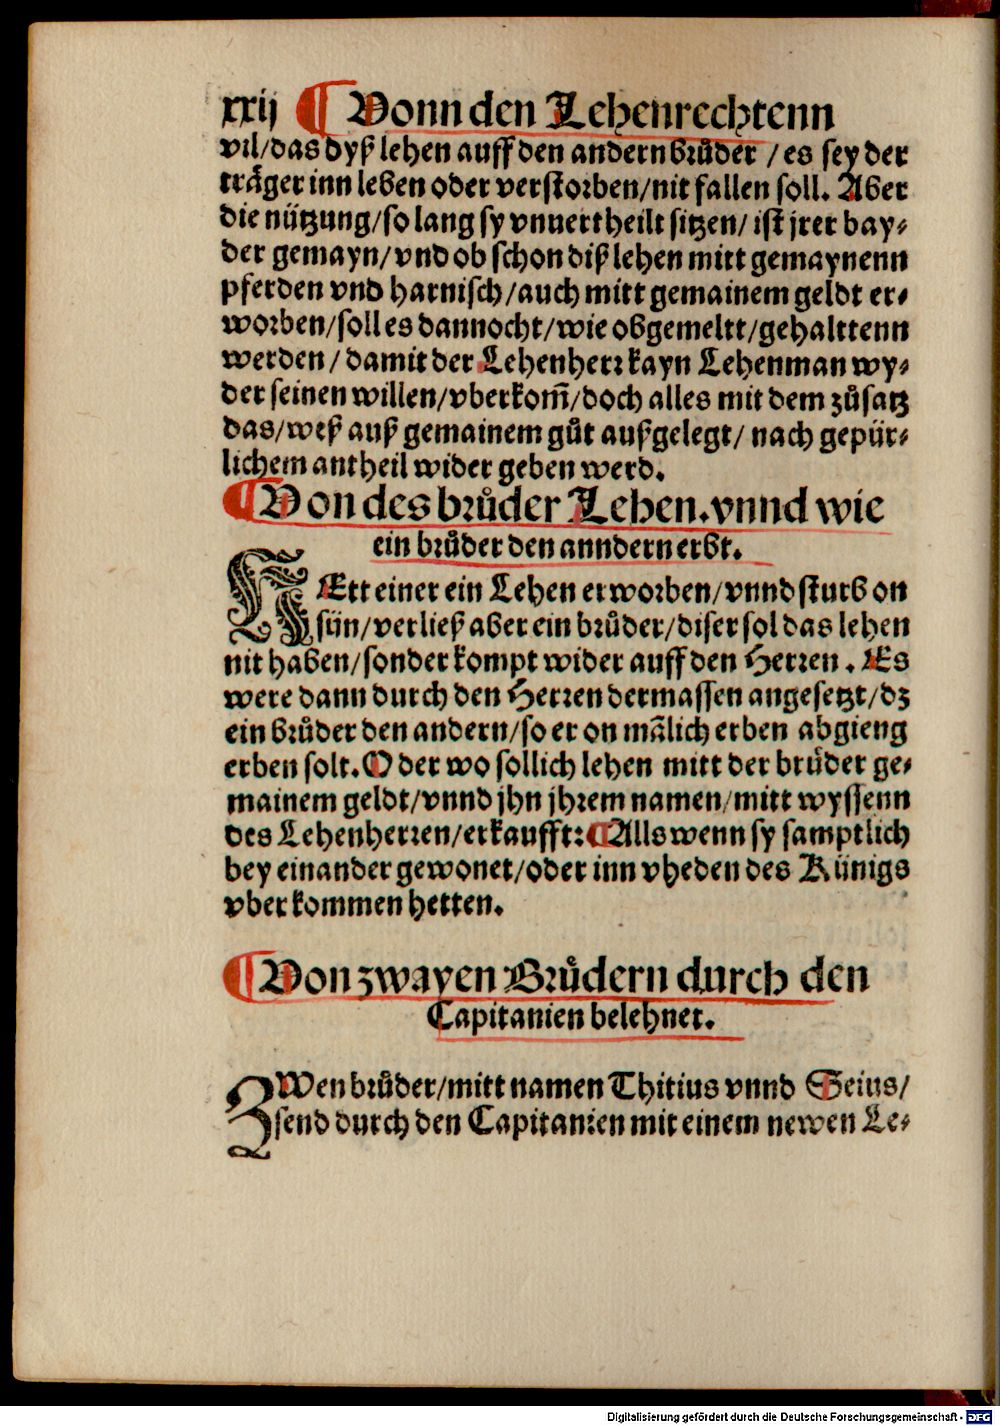 xxij ¶ Vonn den Lehenrechtenn
vil/das dyß lehen auff den andern brůder / es sey der
träger inn leben oder verstorben/nit fallen soll. Aber
die nützung/so lang sy vnuertheilt sitzen/ ist jrer bay⸗
der gemayn/vnd ob schon diß lehen mitt gemaynenn
pferden vnd harnisch/auch mitt gemainem geldt er⸗
worben/soll es dannocht/wie obgemeltt/gehalttenn
werden/ damit der Lehenherr kayn Lehenman wy⸗
der seinen willen/vberkom̃/doch alles mit dem zůsatz
das/weß auß gemainem gůt außgelegt/ nach gepür⸗
lichem antheil wider geben werd.
¶ Von des brůder Lehen.vnnd wie
ein brůder den anndern erbt.
HEtt einer ein Lehen erworben/vnnd sturb on
sün/verließ aber ein brůder/diser sol das lehen
nit haben/sonder kompt wider auff den Herren . Es
were dann durch den Herren dermassen angesetzt/dz
ein brůder den andern/so er on mãlich erben abgieng
erben solt. Oder wo sollich lehen mitt der brůder ge⸗
mainem geldt/vnnd jhn jhrem namen/mitt wyssenn
des Lehenherren/erkaufft: ¶ Alls wenn sy samptlich
bey einander gewonet/oder inn vheden des Künigs
vberkommen hetten.
¶ Von zwayen Brůdern durch den
Capitanien belehnet.
ZWen brůder/mitt namen Thitius vnnd Seius/
send durch den Capitanien mit einem newen Le⸗
Digitalisierung gefördert durch die Deutsche Forschungsgemeinschaft - DFG